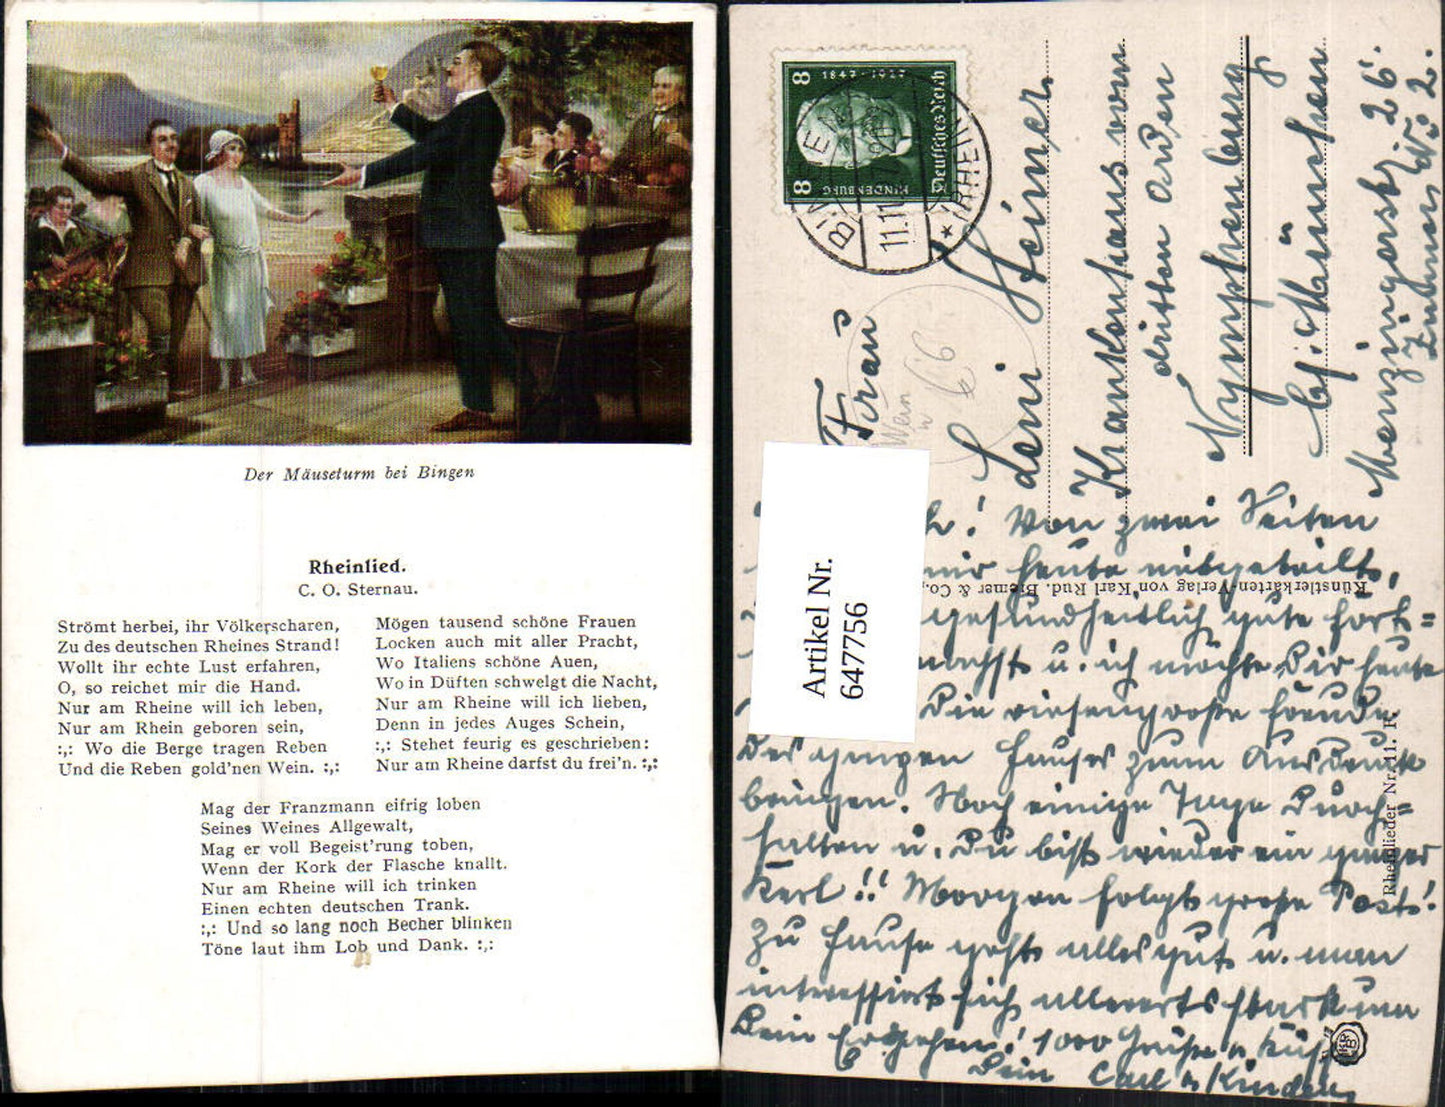 Der Mäuseturm bei Bingen
Rheinlied.
C. O. Sternau.
Strömt herbei, ihr Völkerscharen,
Zu des deutschen Rheines Strand!
Wollt ihr echte Lust erfahren,
O, so reichet mir die Hand.
Nur am Rheine will ich leben,
Nur am Rhein geboren sein,
:,: Wo die Berge tragen Reben
Und die Reben gold'nen Wein. :,:
Mögen tausend schöne Frauen
Locken auch mit aller Pracht,
Wo Italiens schöne Auen,
Wo in Düften schwelgt die Nacht,
Nur am Rheine will ich lieben,
Denn in jedes Auges Schein,
:,: Stehet feurig es geschrieben:
Nur am Rheine darfst du frei'n. :,:
Mag der Franzmann eifrig loben
Seines Weines Allgewalt,
Mag er voll Begeist'rung toben,
Wenn der Kork der Flasche knallt.
Nur am Rheine will ich trinken
Einen echten deutschen Trank.
:,: Und so lang noch Becher blinken
Töne laut ihm Lob und Dank. :,:
8 1847-1927 8
Deutsches Reich
HINDENBURG
11.11
(RHEIN)
Frau
Leni Heimer
Krankenhaus vom
dritten Orden
Nymphenburg
b/München
Menzingerstr. 26.
Zimmer No 2.
Artikel Nr.
647756
! Von zwei Seiten
mir heute mitgeteilt,
gesundheitlich gute Fort=
machst u. ich möchte Dir heute
Die riesengroße Freude
des ganzen Hauses zum Ausdruck
bringen. Noch einige Tage durch=
halten u. Du bist wieder ein ganzer
Kerl!! Morgen folgt große Post!
Zu Hause geht alles gut u. man
interessiert sich allerorts stark um
Dein Ergehen! 1000 Grüße u. Küsse
Dein Carl u. Kinder
Künstlerkarten-Verlag von Karl Rud. Bremer & Co.,
Rheinlieder Nr. 11. F.